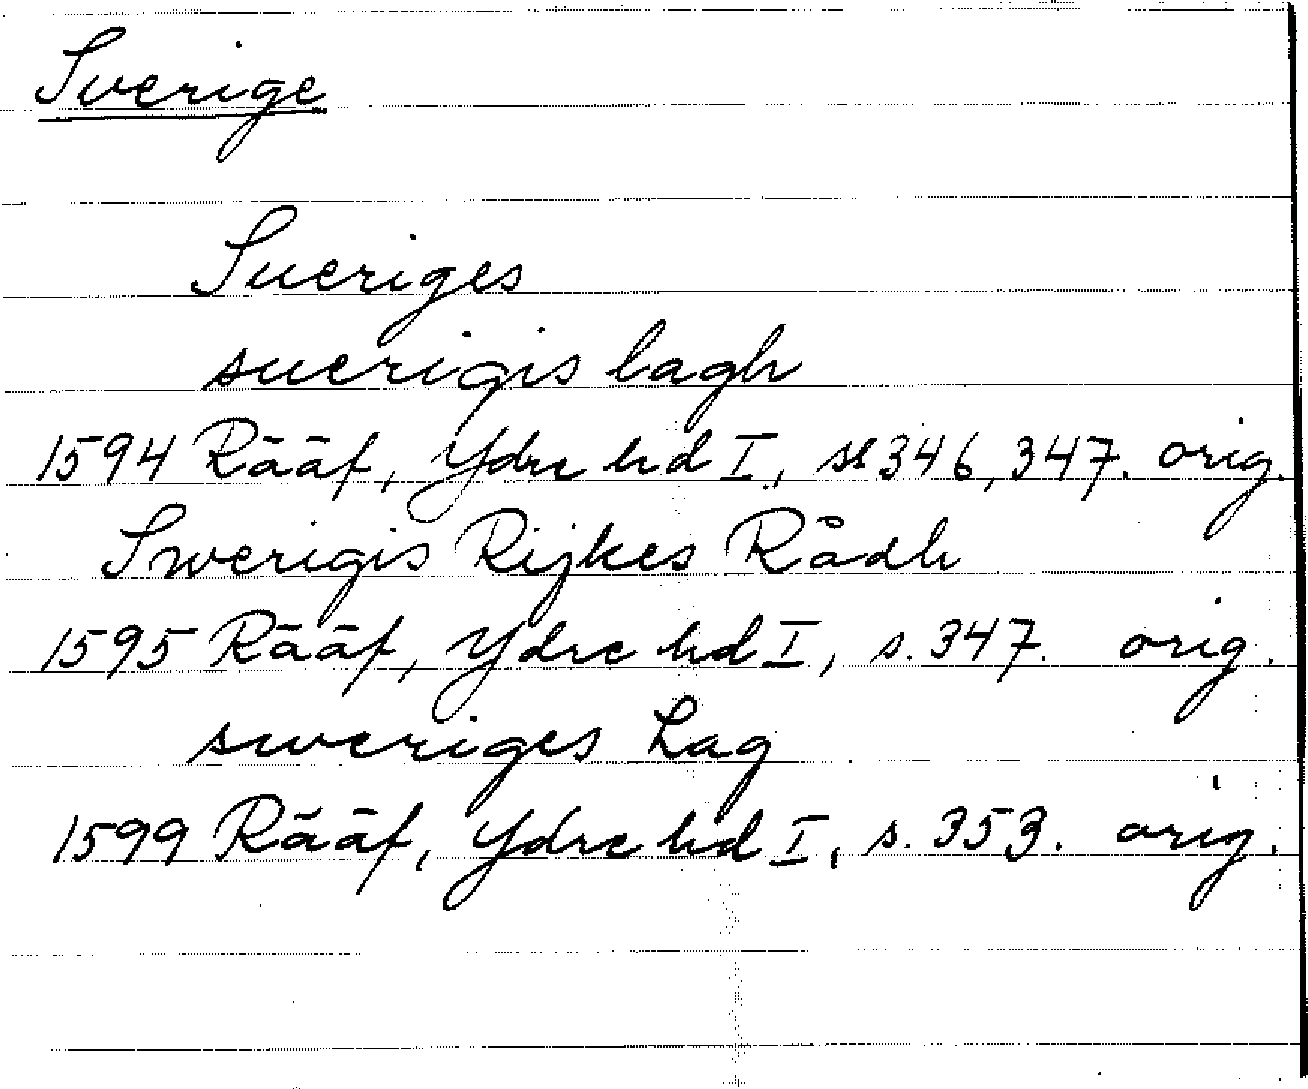 Sverige
Sueriges
suerigis lagh
1594 Rääf, Ydre hd I, s 346, 347. orig.
Swerigis Rijkes Rådh
1595 Rääf, Ydre hd I, s. 347. orig.
sweriges Lag
1599 Rääf, Ydre hd I, s. 353. orig.